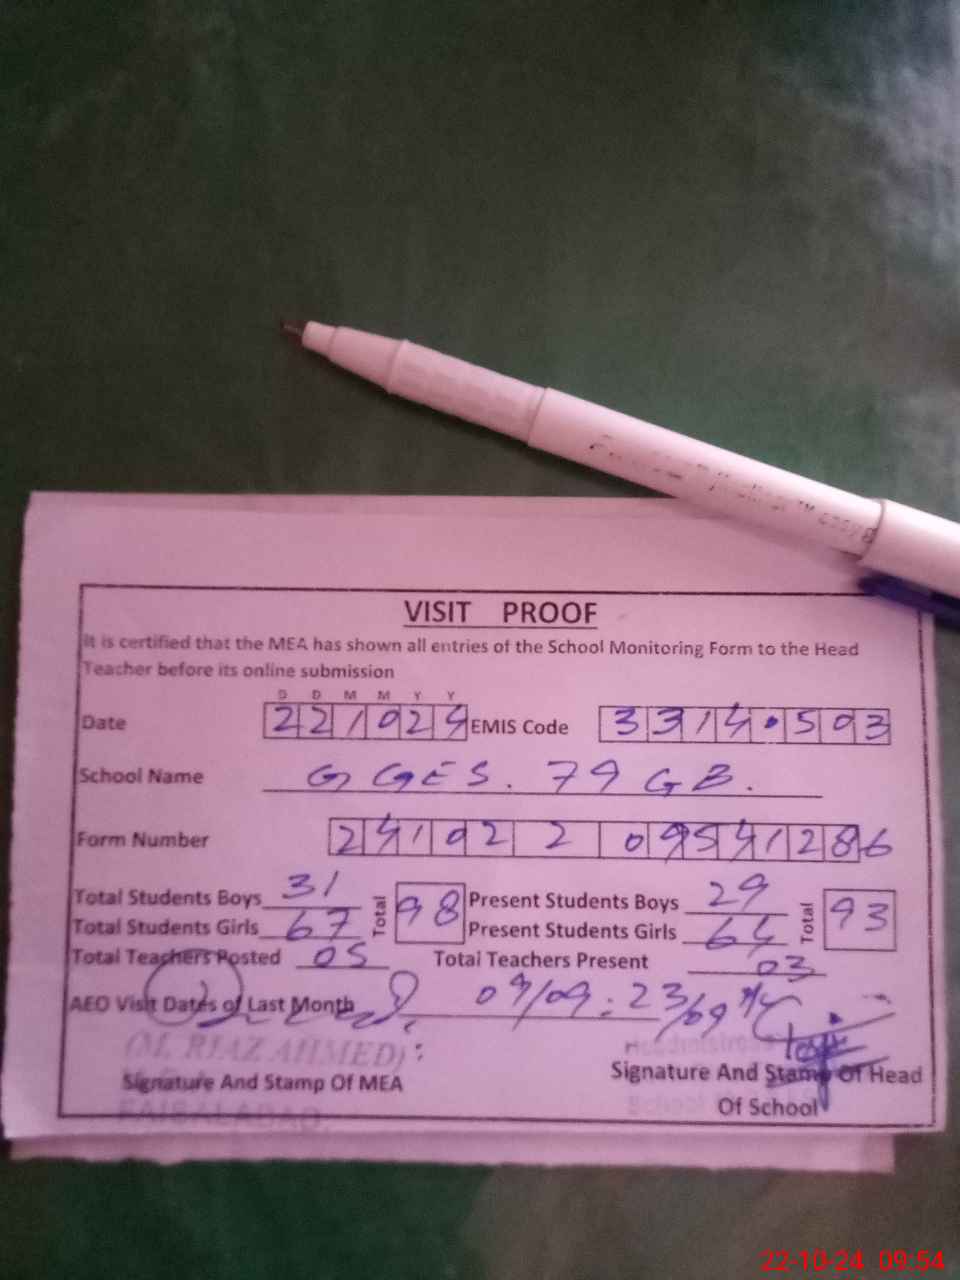 VISIT PROOF
It is certified that the MEA has shown all entries of the School Monitoring Form to the Head
Teacher before its online submission
D D M M Y Y
Date 221024 EMIS Code 3314•503
School Name GGES. 79 GB.
Form Number 241022 2 09541286
Total Students Boys 31 Total 98 Present Students Boys 29 Total 93
Total Students Girls 67 Present Students Girls 64
Total Teachers Posted 05 Total Teachers Present 03
AEO Visit Dates of Last Month 09/09: 23/09
(M. RIAZ AHMED)
Signature And Stamp Of MEA
FAISALABAD.
Headmistress
Signature And Stamp Of Head
Of School
School
22-10-24 09:54